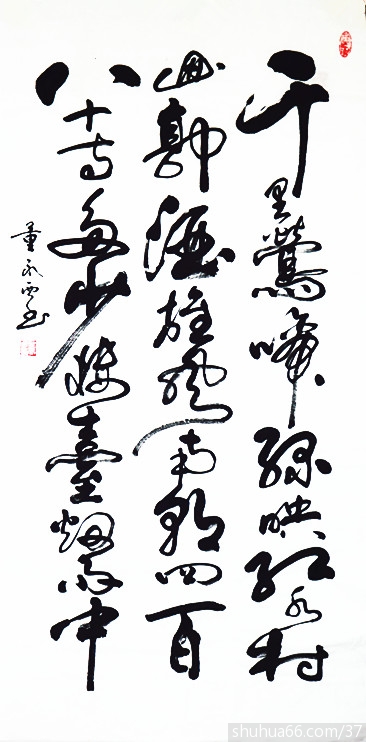 千里鶯啼綠映紅水村
山郭酒旗風南朝四百
八十寺多少樓臺烟雨中
董永书
shuhua66.com/37